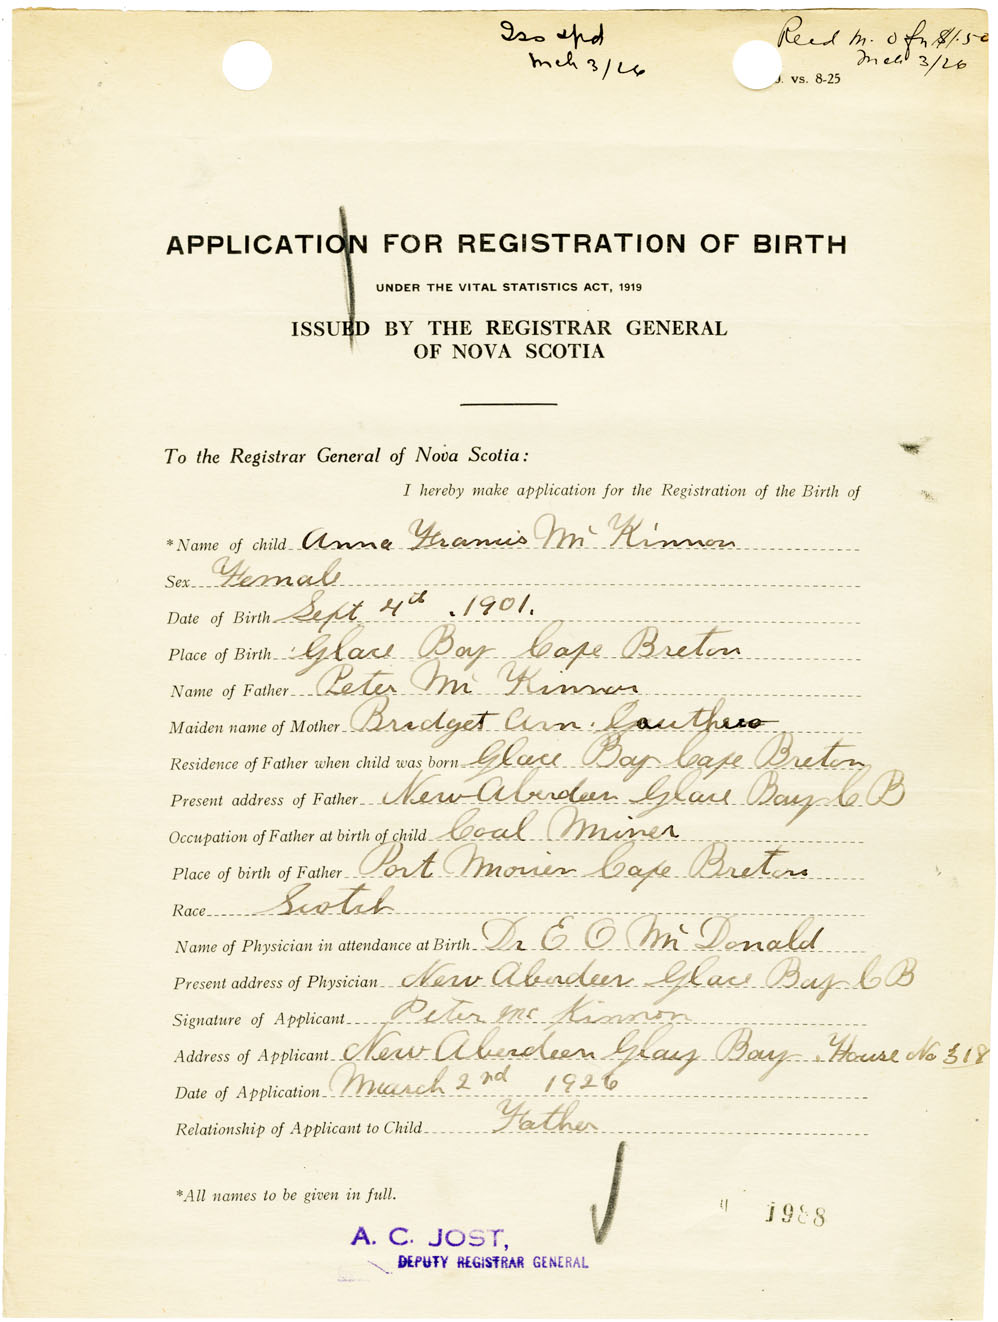 Iss & pd
Mch 3/26
Recd M. O for $1.50
Mch 3/26
vs. 8-25
APPLICATION FOR REGISTRATION OF BIRTH
UNDER THE VITAL STATISTICS ACT, 1919
ISSUED BY THE REGISTRAR GENERAL
OF NOVA SCOTIA
To the Registrar General of Nova Scotia:
I hereby make application for the Registration of the Birth of
*Name of child Anna Francis Mc Kinnon
Sex Female
Date of Birth Sept 4th . 1901.
Place of Birth Glace Bay Cape Breton
Name of Father Peter Mc Kinnon
Maiden name of Mother Bridget Ann.
Residence of Father when child was born Glace Bay Cape Breton
Present address of Father New Aberdeen Glace Bay C B
Occupation of Father at birth of child Coal Miner
Place of birth of Father Port Morien Cape Breton
Race Scotch
Name of Physician in attendance at Birth Dr E O Mc Donald
Present address of Physician New Aberdeen Glace Bay C B
Signature of Applicant Peter Mc Kinnon
Address of Applicant New Aberdeen Glay Bay . House No 318
Date of Application March 2nd 1926
Relationship of Applicant to Child Father
*All names to be given in full.
1988
A. C. JOST,
DEPUTY REGISTRAR GENERAL